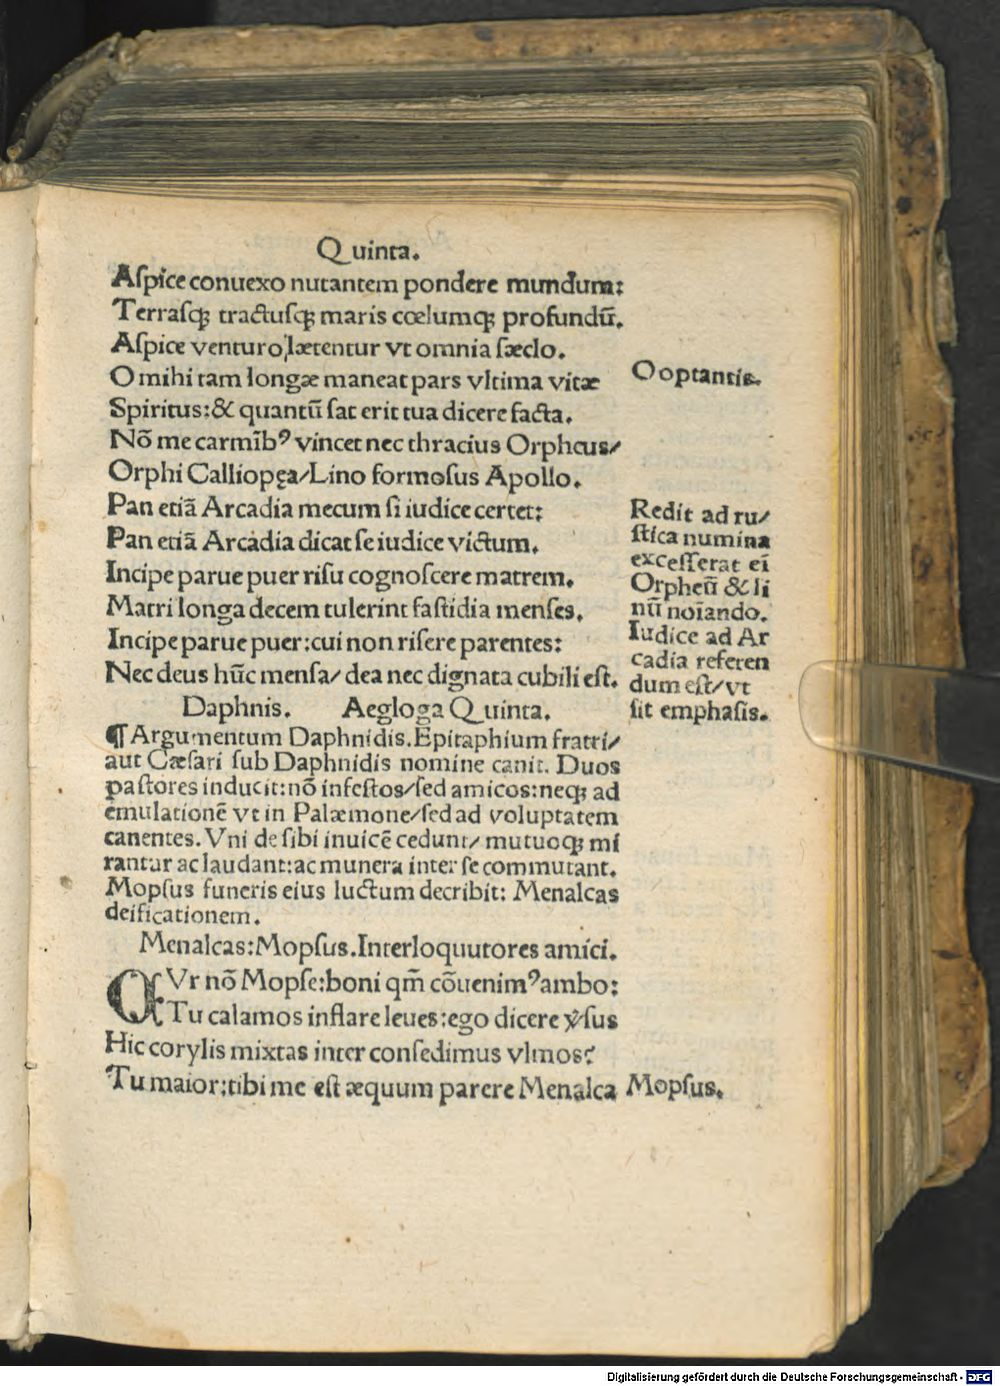 Quinta.
Aſpice conuexo nutantem pondere mundum:
Terraſqꝫ tractuſqꝫ maris cœlumqꝫ profundū.
Aſpice venturo lætentur vt omnia ſæclo.
O mihi tam longæ maneat pars vltima vitæ
O optantis.
Spiritus:& quantū ſat erit tua dicere facta.
Nō me carmīb⁹ vincet nec thracius Orpheus/
Orphi Calliopęa/Lino formosus Apollo.
Pan etiā Arcadia mecum ſi iudice certet:
Pan etiā Arcadia dicat ſe iudice victum.
Incipe parue puer riſu cognoſcere matrem.
Matri longa decem tulerint faſtidia menſes.
Incipe parue puer:cui non riſere parentes:
Nec deus hūc menſa/ dea nec dignata cubili eſt.
Redit ad ru/
ſtica numina
exceſſerat eī
Orpheū & li
nū noīando.
Iudice ad Ar
cadia referen
dum eſt/ vt
ſit emphaſis.
Daphnis. Aegloga Quinta.
¶ Argumentum Daphnidis. Epitaphium fratri/
aut Cæſari ſub Daphnidis nomine canit. Duos
paſtores inducit:nō infeſtos/ſed amicos:neqꝫ ad
emulationē vt in Palæmone/ſed ad voluptatem
canentes. Vni de ſibi inuicē cedunt/ mutuoqꝫ mi
rantur ac laudant:ac munera inter ſe commutant.
Mopſus funeris eius luctum decribit: Menalcas
deificationem.
Menalcas:Mopſus. Interloquutores amici.
CVr nō Mopſe:boni qm̄ cōuenim⁹ ambo:
Tu calamos inflare leues:ego dicere ꝟſus
Hic corylis mixtas inter conſedimus vlmos?
Tu maior:tibi me eſt æquum parere Menalca
Mopſus.
Digitalisierung gefördert durch die Deutsche Forschungsgemeinschaft - DFG